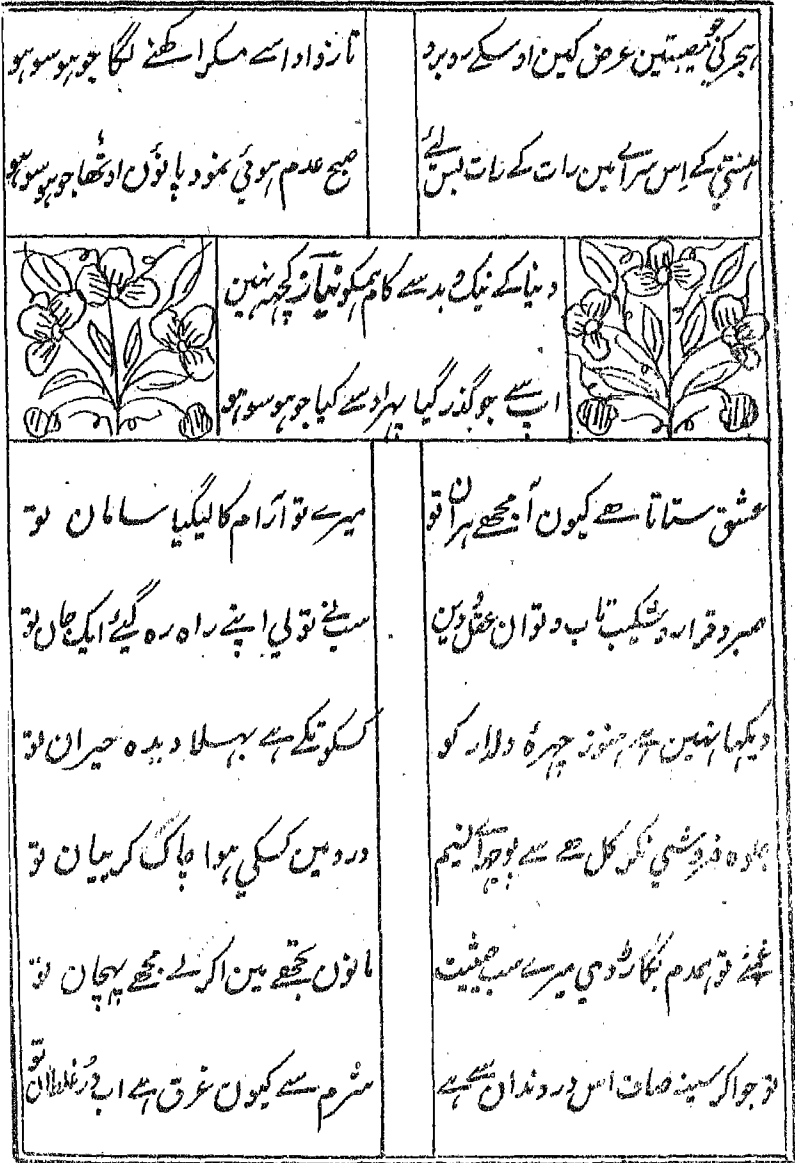 ہجر کی جو مصیبتین عرض کین اوسکے روبرو
نازو اداسے مسکرا کہنے لگا جو ہو سو ہو
ہستی کے اِس سراے مین رات کے رات بس لئے
صبح عدم ہوئی نمود پاؤن اوٹھا جو ہو سو ہو
دنیا کے نیک و بد سے کام ہمکو نیاز کچہہ نہین
آپ سے جو گذر گیا پہر اوسے کیا جو ہو سو ہو
عشق ستاتا ہے کیون آ مجھے ہر آن تو
میرے تو آرام کا لیگیا سامان تو
صبر و قرار و شکیب تاب و توان عقل و دین
سب نے تو لی اپنے راہ رہ گئے ایک جان تو
دیکہا نہین ہے ہنوز چہرۂ دلدار کو
کسکو تکے ہے بہلا دیدہ حیران تو
جلوہ فروشی نکر گل سے
درد مین کسکی ہوا چاک گریبان تو
غمنے تو ہمدم بگاڑ دی میرے سب
مانون تجھے مین اگر لے مجھے پہچان تو
تو جو اگر سینہ صاف اس در دندان سے ہے
شرم سے کیون غرق ہے اب دُر غلطان تو